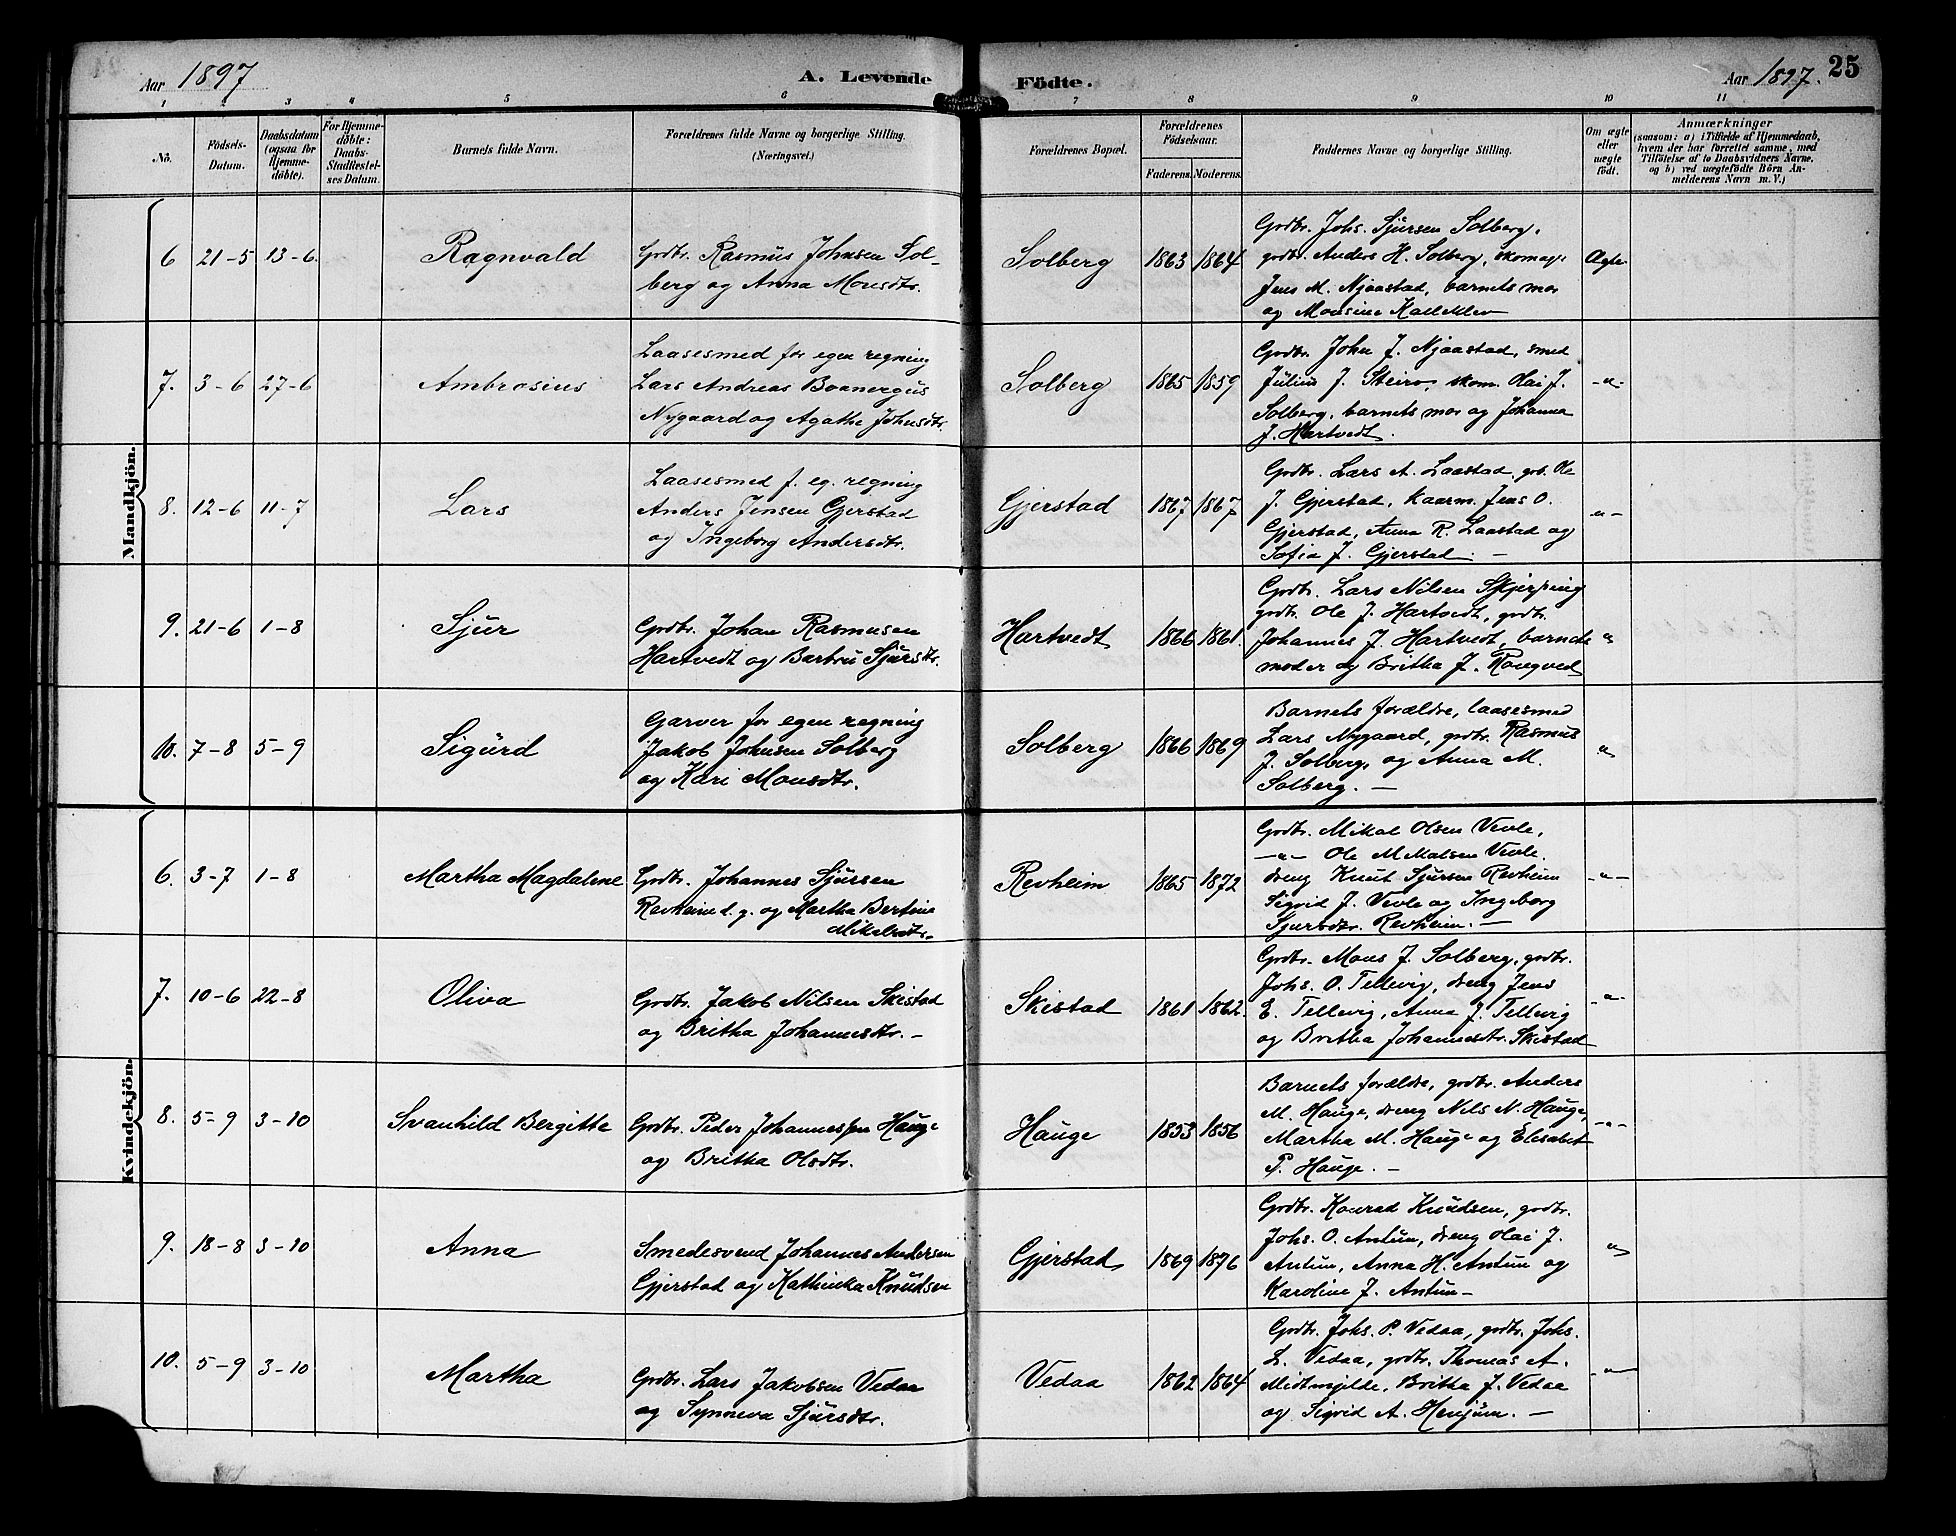 Aar 1897
A. Levende
Födte.
Aar 1897.
25
1 2 3 4 5 6 7 8 9 10 11
No.
Födsels-
Datum.
Daabsdatum
(ogsaa for
Hjemme-
döbte).
For Hjemme-
döbte:
Daabs-
Stadfæstel-
ses Datum.
Barnets fulde Navn.
Forældrenes fulde Navne og borgerlige Stilling.
(Næringsvei.)
Forældrenes Bopæl.
Forældrenes
Födselsaar.
Faderens.
Moderens.
Faddernes Navne og borgerlige Stilling.
Om ægte
eller
uægte
födt.
Anmærkninger
(saasom: a) i Tilfælde af Hjemmedaab,
hvem der har forrettet samme, med
Tilföielse af to Daabsvidners Navne,
og b) ved uægtefödte Börn An-
melderens Navn m. V.)
Mandkjön.
6 21-5 13-6. Ragnvald
Grdbr. Rasmus Johnsen Sol-
berg og Anna Monsdtr.
Solberg 1863 1864
Grdbr. Johs. Sjursen Solberg,
grdbr. Anders H. Solberg, skomag.
Jens M. Njaastad, barnets mor
og Monsine Kalleklev
Ægte
7. 3-6 27-6 Ambrosius
Laasesmed for egen regning
Lars Andreas Boanerges
Nygaard og Agathe Johnsdtr.
Solberg 1865 1859
Grdbr. John J. Njaastad, smed
Julius J. Steiro, skom. Olai J.
Solberg, barnets mor og Johanna
J. Hartvedt.
-"-
8. 12-6 11-7 Lars
Laasesmed f. eg. regning
Anders Jensen Gjerstad
og Ingeborg Andersdtr.
Gjerstad 1867 1867
Grdbr. Lars A. Laastad, grb. Ole
J. Gjerstad, kaarm. Jens O.
Gjerstad, Anna R. Laastad og
Sofia J. Gjerstad. -
"-
9. 21-6 1-8 Sjur
Grdbr. Johan Rasmusen
Hartvedt og Barbru Sjursdtr.
Hartvedt 1866 1861.
Grdbr. Lars Nilsen Skjerping
grdbr. Ole J. Hartvedt, grdbr.
Johannes J. Hartvedt, barnets
moder og Britha J. Rongved
"
10. 7-8 5-9 Sigurd
Garver for egen regning
Jakob Johnsen Solberg
og Kari Monsdtr.
Solberg 1866 1869
Barnets forældre, laasesmed
Lars Nygaard, grdbr. Rasmus
J. Solberg, og Anna M.
Solberg. -
"
Kvindekjön.
6. 3-7 1-8 Martha Magdalene
Grdbr. Johannes Sjursen
Revheim d. y. og Martha Bertine
Mikalsdtr.
Revheim 1865 1872
Grdbr. Mikal Olsen Vevle,
-"- Ole M. Vevle.
dreng Knut Sjursen Revheim
Sigrid J. Vevle og Ingeborg
Sjursdtr. Revheim. -
-"-
7. 10-6 22-8 Oliva
Grdbr. Jakob Nilsen Skistad
og Britha Johannesdtr. -
Skistad 1861 1862.
Grdbr. Mons J. Solberg, grdbr.
Johs. O. Tellevig, dreng Jens
E. Tellevig, Anna J. Tellevig
og Britha Johannesdtr. Skistad
-"-
8. 5-9 3-10 Svanhild Bergitte
Grdbr. Peder Johannessen Hauge
og Britha Olsdtr.
Hauge 1853 1856
Barnets forældre, grdbr. Anders
M. Hauge, dreng Nils N. Hauge,
Martha M. Hauge og Elisabet
P. Hauge. -
-"-
9. 18-8 3-10 Anna
Smedesvend Johannes Andersen
Gjerstad og Kathinka Knudsen
Gjerstad 1869 1876
Grdbr. Konrad Knudsen, grdbr.
Johs. O. Antun, dreng Olai J.
Antun, Anna H. Antun og
Karoline J. Antun-
"
10. 5-9 3-10 Martha
Grdbr. Lars Jakobsen Vedaa
og Synneva Sjursdtr.
Vedaa 1862 1864
Grdbr. Johs. P. Vedaa, grdbr. Johs.
L. Vedaa, grdbr. Thomas A.
Midtmjelde, Britha J. Vedaa
og Sigrid A. Henjum. -
-"-